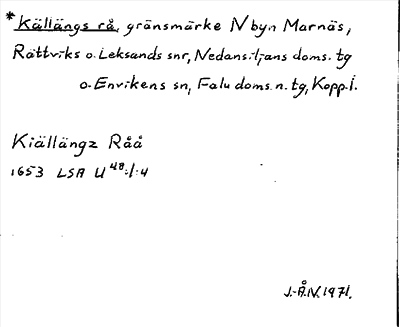 *Källängs rå, gränsmärke N byn Marnäs,
Rättviks o. Leksands snr, Nedansiljans doms. tg
o. Envikens sn, Falu doms. n. tg, Kopp. l.
Kiällängz Råå
1653 LSA U 48:1:4
J.-Å.W. 1971.